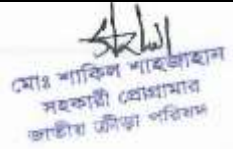 মোঃ শাকিল শাহজাহান
সহকারী প্রোগ্রামার
জাতীয় ক্রীড়া পরিষদ